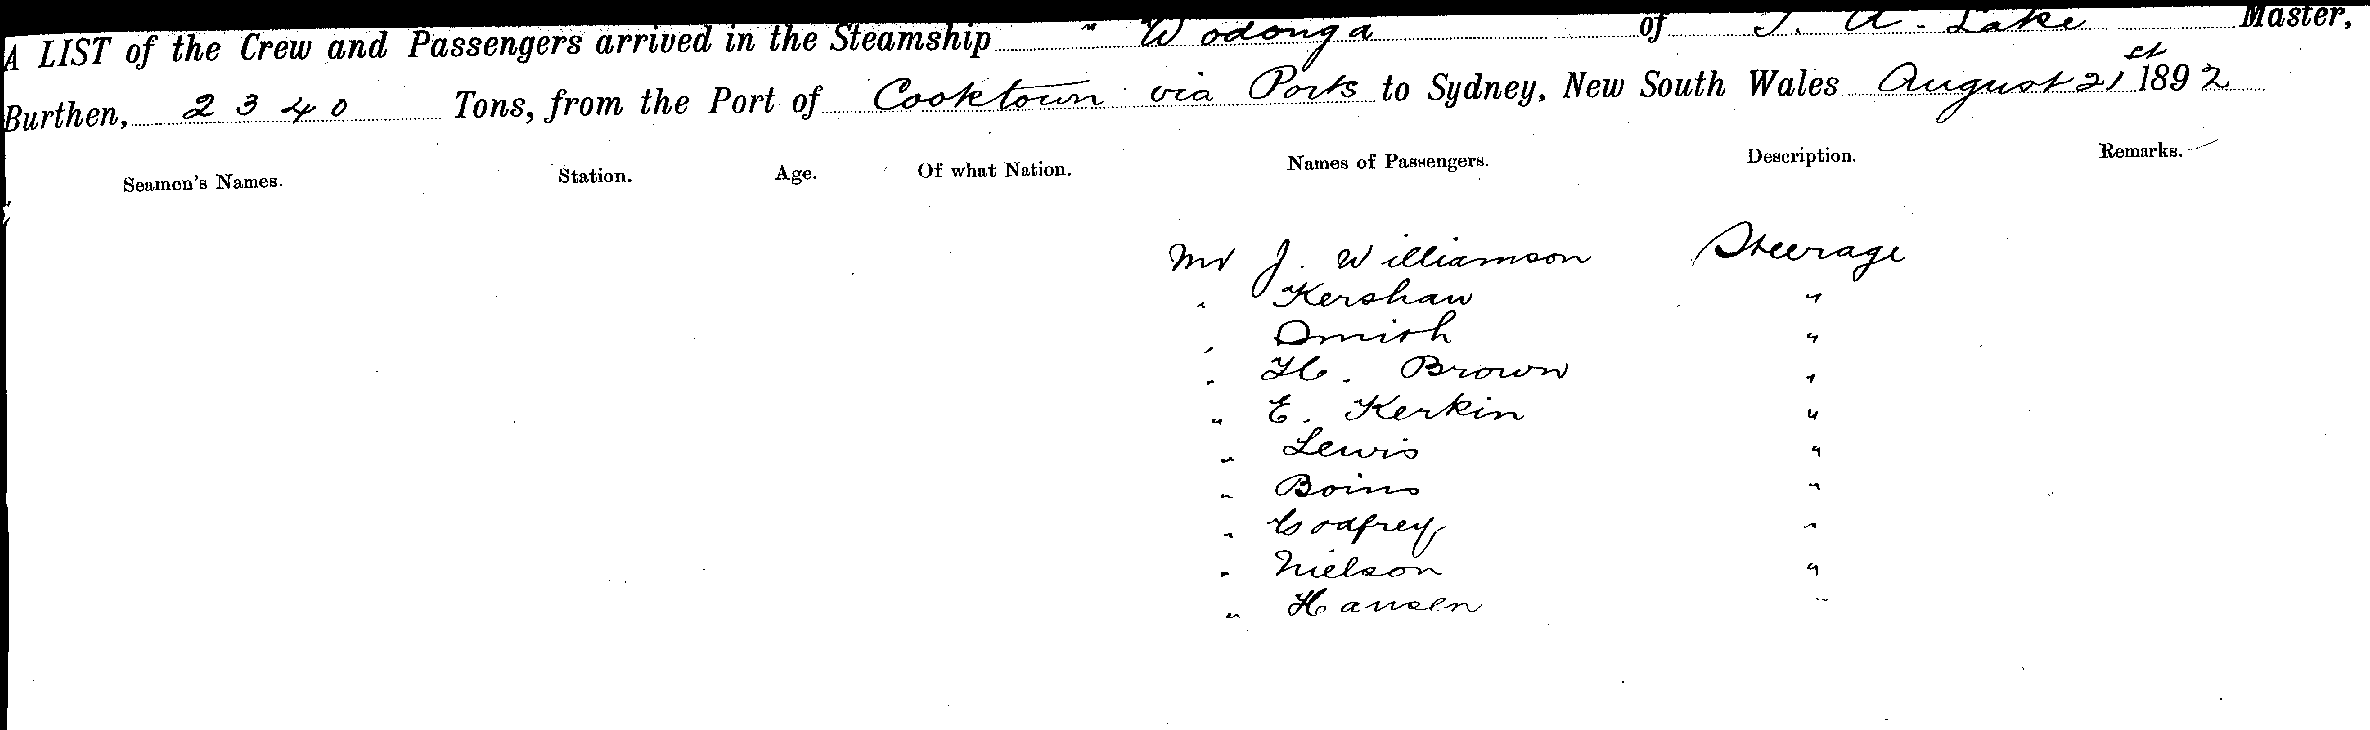 A LIST of the Crew and Passengers arrived in the Steamship "Wodonga of T. A. Lake Master,
Burthen, 2340 Tons, from the Port of Cooktown via Ports to Sydney, New South Wales August 21st 1892
Seamen's Names. Station. Age. Of what Nation. Names of Passengers. Description. Remarks.
Mr J. Williamson Steerage
" Kershaw "
" Smith "
" H. Brown "
" E. Kerkin "
" Lewis "
" Boins "
" Godfrey "
" Nielson "
" Hansen "